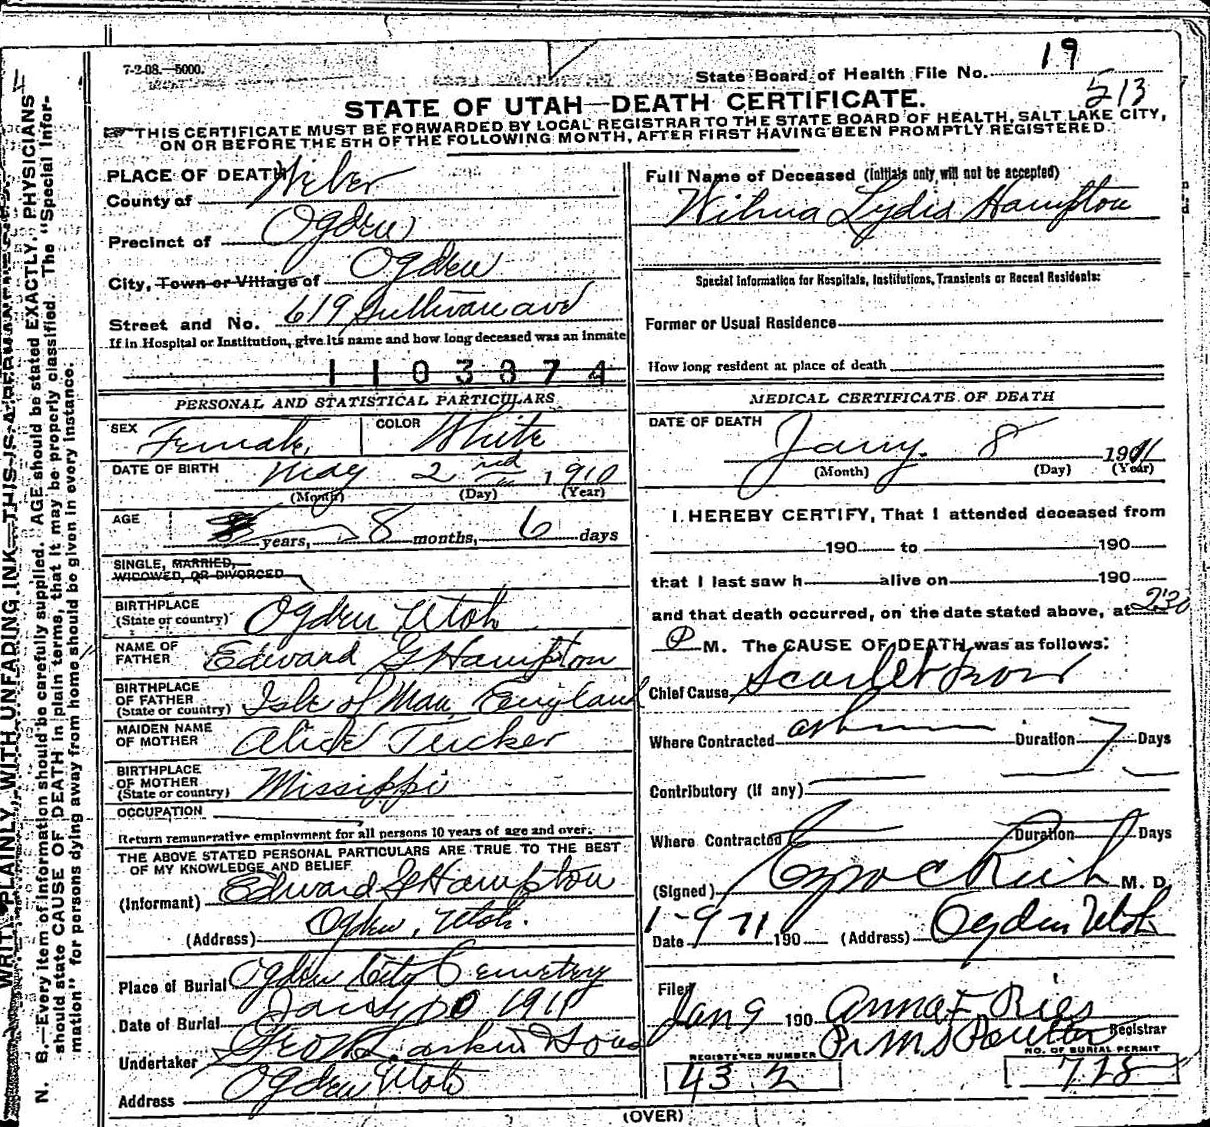 7-2-08.—5000.
State Board of Health File No. 19
513
STATE OF UTAH—DEATH CERTIFICATE.
THIS CERTIFICATE MUST BE FORWARDED BY LOCAL REGISTRAR TO THE STATE BOARD OF HEALTH, SALT LAKE CITY,
ON OR BEFORE THE 5TH OF THE FOLLOWING MONTH, AFTER FIRST HAVING BEEN PROMPTLY REGISTERED.
PLACE OF DEATH
County of Weber
Precinct of Ogden
City, Town or Village of Ogden
Street and No. 619 Sullivan ave
If in Hospital or Institution, give its name and how long deceased was an inmate
1103874
PERSONAL AND STATISTICAL PARTICULARS
SEX Female, COLOR White
DATE OF BIRTH May 2nd 1910
(Month) (Day) (Year)
AGE years, 8 months, 6 days
SINGLE, MARRIED,
WIDOWED, OR DIVORCED
BIRTHPLACE
(State or country) Ogden Utah
NAME OF
FATHER Edward G Hampton
BIRTHPLACE
OF FATHER
(State or country) Isle of Man, England
MAIDEN NAME
OF MOTHER Alice Tucker
BIRTHPLACE
OF MOTHER
(State or country) Missippi
OCCUPATION
Return remunerative employment for all persons 10 years of age and over.
THE ABOVE STATED PERSONAL PARTICULARS ARE TRUE TO THE BEST
OF MY KNOWLEDGE AND BELIEF
(Informant) Edward G Hampton
(Address) Ogden, Utah.
Place of Burial Ogden City Cemetery
Date of Burial Jany 10 1911
Undertaker Larkin & Sons
Address Ogden Utah
Full Name of Deceased (Initials only will not be accepted)
Wilma Lydia Hampton
Special Information for Hospitals, Institutions, Transients or Recent Residents:
Former or Usual Residence
How long resident at place of death
MEDICAL CERTIFICATE OF DEATH
DATE OF DEATH Jany. 8 1911
(Month) (Day) (Year)
I HEREBY CERTIFY, That I attended deceased from
190 to 190
that I last saw h alive on 190
and that death occurred, on the date stated above, at 2:30
P M. The CAUSE OF DEATH was as follows:
Chief Cause Scarlet Fever
Where Contracted at home Duration 7 Days
Contributory (if any)
Where Contracted Duration Days
(Signed) Ezra C Rich M. D.
Date 1-9-11 190 (Address) Ogden Utah
Filed Jan 9 190 Anna F. Ries
Registrar
REGISTERED NUMBER 432
NO. OF BURIAL PERMIT 728
(OVER)
WRITE PLAINLY, WITH UNFADING INK—THIS IS A PERMANENT
N. B.—Every item of information should be carefully supplied. AGE should be stated EXACTLY. PHYSICIANS
should state CAUSE OF DEATH in plain terms, that it may be properly classified. The "Special Infor-
mation" for persons dying away from home should be given in every instance.